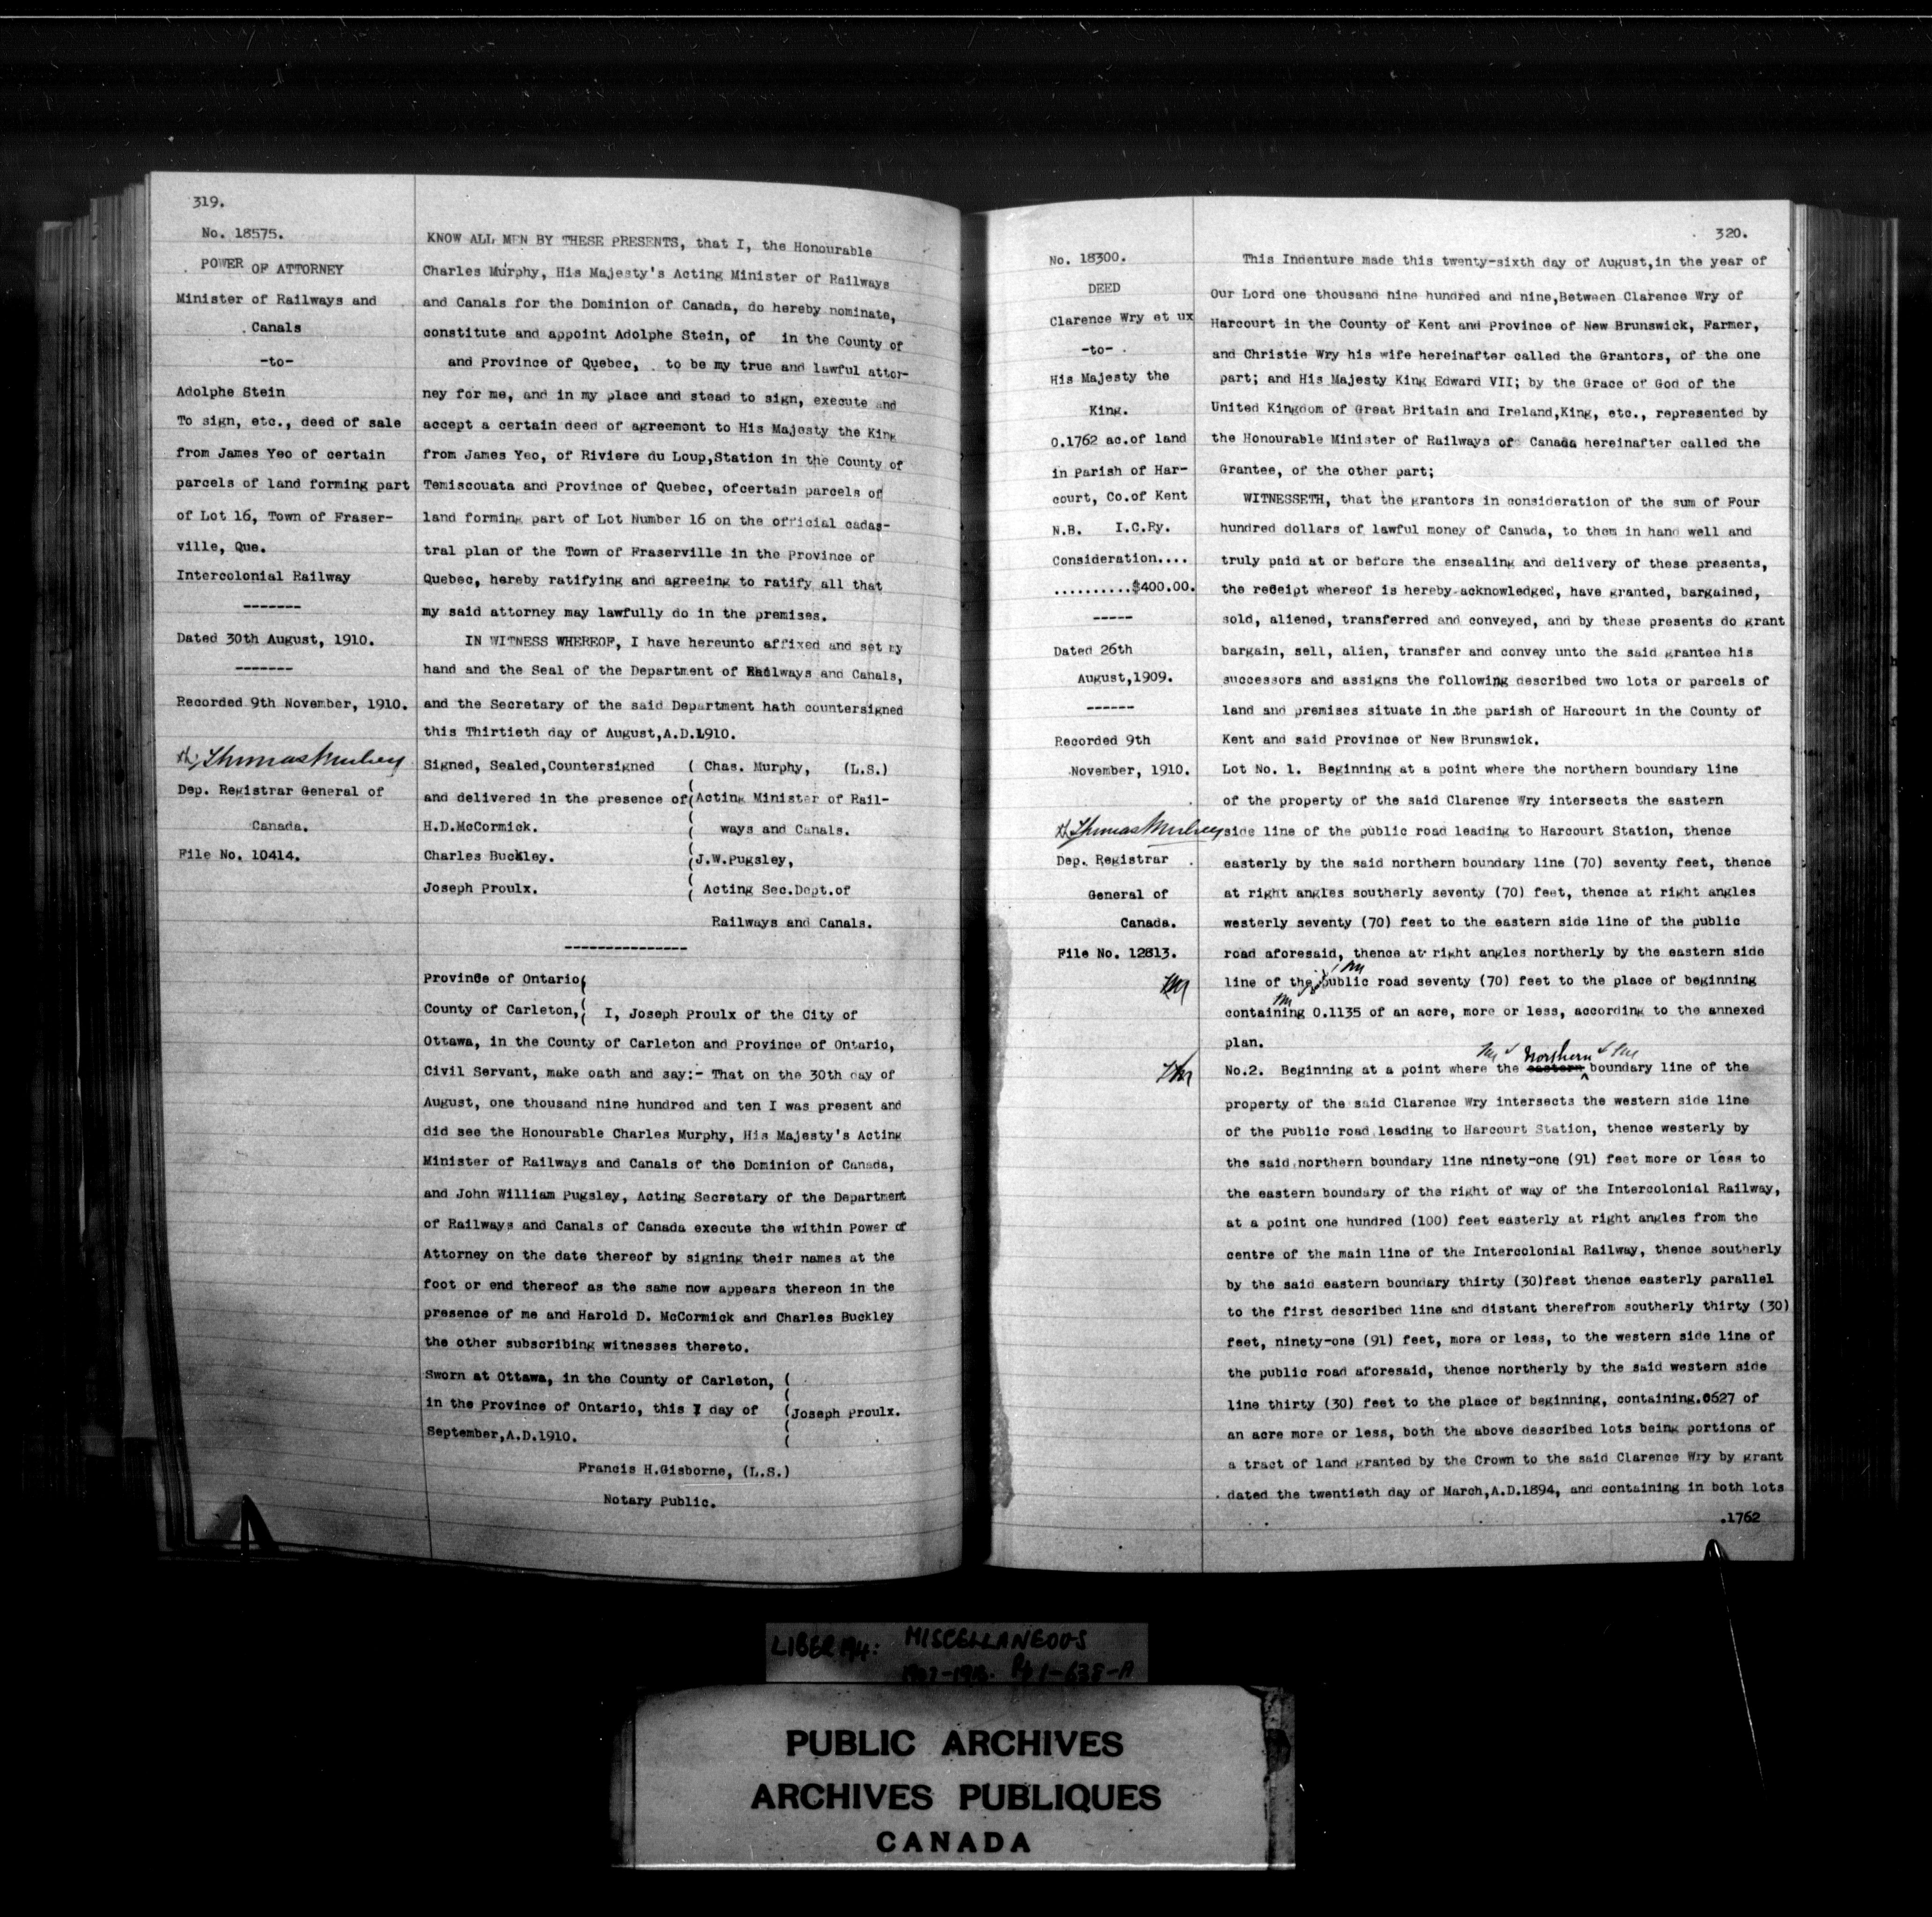 319.
No. 18575.
POWER OF ATTORNEY
Minister of Railways and
Canals
-to-
Adolphe Stein
To sign, etc., deed of sale
from James Yeo of certain
parcels of land forming part
of Lot 16, Town of Fraser-
ville, Que.
Intercolonial Railway
-------
Dated 30th August, 1910.
-------
Recorded 9th November, 1910.
Thomas Mulvey
Dep. Registrar General of
Canada.
File No. 10414.
KNOW ALL MEN BY THESE PRESENTS, that I, the Honourable
Charles Murphy, His Majesty's Acting Minister of Railways
and Canals for the Dominion of Canada, do hereby nominate,
constitute and appoint Adolphe Stein, of in the County of
and Province of Quebec, to be my true and lawful attor-
ney for me, and in my place and stead to sign, execute and
accept a certain deed of agreement to His Majesty the King
from James Yeo, of Riviere du Loup,Station in the County of
Temiscouata and Province of Quebec, ofcertain parcels of
land forming part of Lot Number 16 on the official cadas-
tral plan of the Town of Fraserville in the Province of
Quebec, hereby ratifying and agreeing to ratify all that
my said attorney may lawfully do in the premises.
IN WITNESS WHEREOF, I have hereunto affixed and set my
hand and the Seal of the Department of Railways and Canals,
and the Secretary of the said Department hath countersigned
this Thirtieth day of August,A.D.1910.
Signed, Sealed,Countersigned ( Chas. Murphy, (L.S.)
and delivered in the presence of( Acting Minister of Rail-
H.D.McCormick. ( ways and Canals.
Charles Buckley. (J.W.Pugsley,
Joseph Proulx. ( Acting Sec.Dept.of
Railways and Canals.
---------------
Province of Ontario(
County of Carleton,( I, Joseph Proulx of the City of
Ottawa, in the County of Carleton and Province of Ontario,
Civil Servant, make oath and say:- That on the 30th day of
August, one thousand nine hundred and ten I was present and
did see the Honourable Charles Murphy, His Majesty's Acting
Minister of Railways and Canals of the Dominion of Canada,
and John William Pugsley, Acting Secretary of the Department
of Railways and Canals of Canada execute the within Power of
Attorney on the date thereof by signing their names at the
foot or end thereof as the same now appears thereon in the
presence of me and Harold D. McCormick and Charles Buckley
the other subscribing witnesses thereto.
Sworn at Ottawa, in the County of Carleton, (
in the Province of Ontario, this day of (Joseph Proulx.
September,A.D.1910. (
Francis H.Gisborne, (L.S.)
Notary Public.
320.
No. 18300.
DEED
Clarence Wry et ux
-to-
His Majesty the
King.
0.1762 ac.of land
in Parish of Har-
court, Co.of Kent
N.B. I.C.Ry.
Consideration....
..........$400.00.
-----
Dated 26th
August,1909.
------
Recorded 9th
November, 1910.
Thomas Mulvey
Dep. Registrar
General of
Canada.
File No. 12813.
TM
TM
This Indenture made this twenty-sixth day of August,in the year of
Our Lord one thousand nine hundred and nine,Between Clarence Wry of
Harcourt in the County of Kent and Province of New Brunswick, Farmer,
and Christie Wry his wife hereinafter called the Grantors, of the one
part; and His Majesty King Edward VII; by the Grace of God of the
United Kingdom of Great Britain and Ireland,King, etc., represented by
the Honourable Minister of Railways of Canada hereinafter called the
Grantee, of the other part;
WITNESSETH, that the grantors in consideration of the sum of Four
hundred dollars of lawful money of Canada, to them in hand well and
truly paid at or before the ensealing and delivery of these presents,
the receipt whereof is hereby acknowledged, have granted, bargained,
sold, aliened, transferred and conveyed, and by these presents do grant
bargain, sell, alien, transfer and convey unto the said grantee his
successors and assigns the following described two lots or parcels of
land and premises situate in the parish of Harcourt in the County of
Kent and said Province of New Brunswick.
Lot No. 1. Beginning at a point where the northern boundary line
of the property of the said Clarence Wry intersects the eastern
side line of the public road leading to Harcourt Station, thence
easterly by the said northern boundary line (70) seventy feet, thence
at right angles southerly seventy (70) feet, thence at right angles
westerly seventy (70) feet to the eastern side line of the public
road aforesaid, thence at right angles northerly by the eastern side
line of the public road seventy (70) feet to the place of beginning
containing 0.1135 of an acre, more or less, according to the annexed
plan.
No.2. Beginning at a point where the eastern Northern boundary line of the
property of the said Clarence Wry intersects the western side line
of the Public road leading to Harcourt Station, thence westerly by
the said northern boundary line ninety-one (91) feet more or less to
the eastern boundary of the right of way of the Intercolonial Railway,
at a point one hundred (100) feet easterly at right angles from the
centre of the main line of the Intercolonial Railway, thence southerly
by the said eastern boundary thirty (30)feet thence easterly parallel
to the first described line and distant therefrom southerly thirty (30)
feet, ninety-one (91) feet, more or less, to the western side line of
the public road aforesaid, thence northerly by the said western side
line thirty (30) feet to the place of beginning, containing.0627 of
an acre more or less, both the above described lots being portions of
a tract of land granted by the Crown to the said Clarence Wry by grant
dated the twentieth day of March,A.D.1894, and containing in both lots
.1762
LIBER MISCELLANEOUS
PUBLIC ARCHIVES
ARCHIVES PUBLIQUES
CANADA